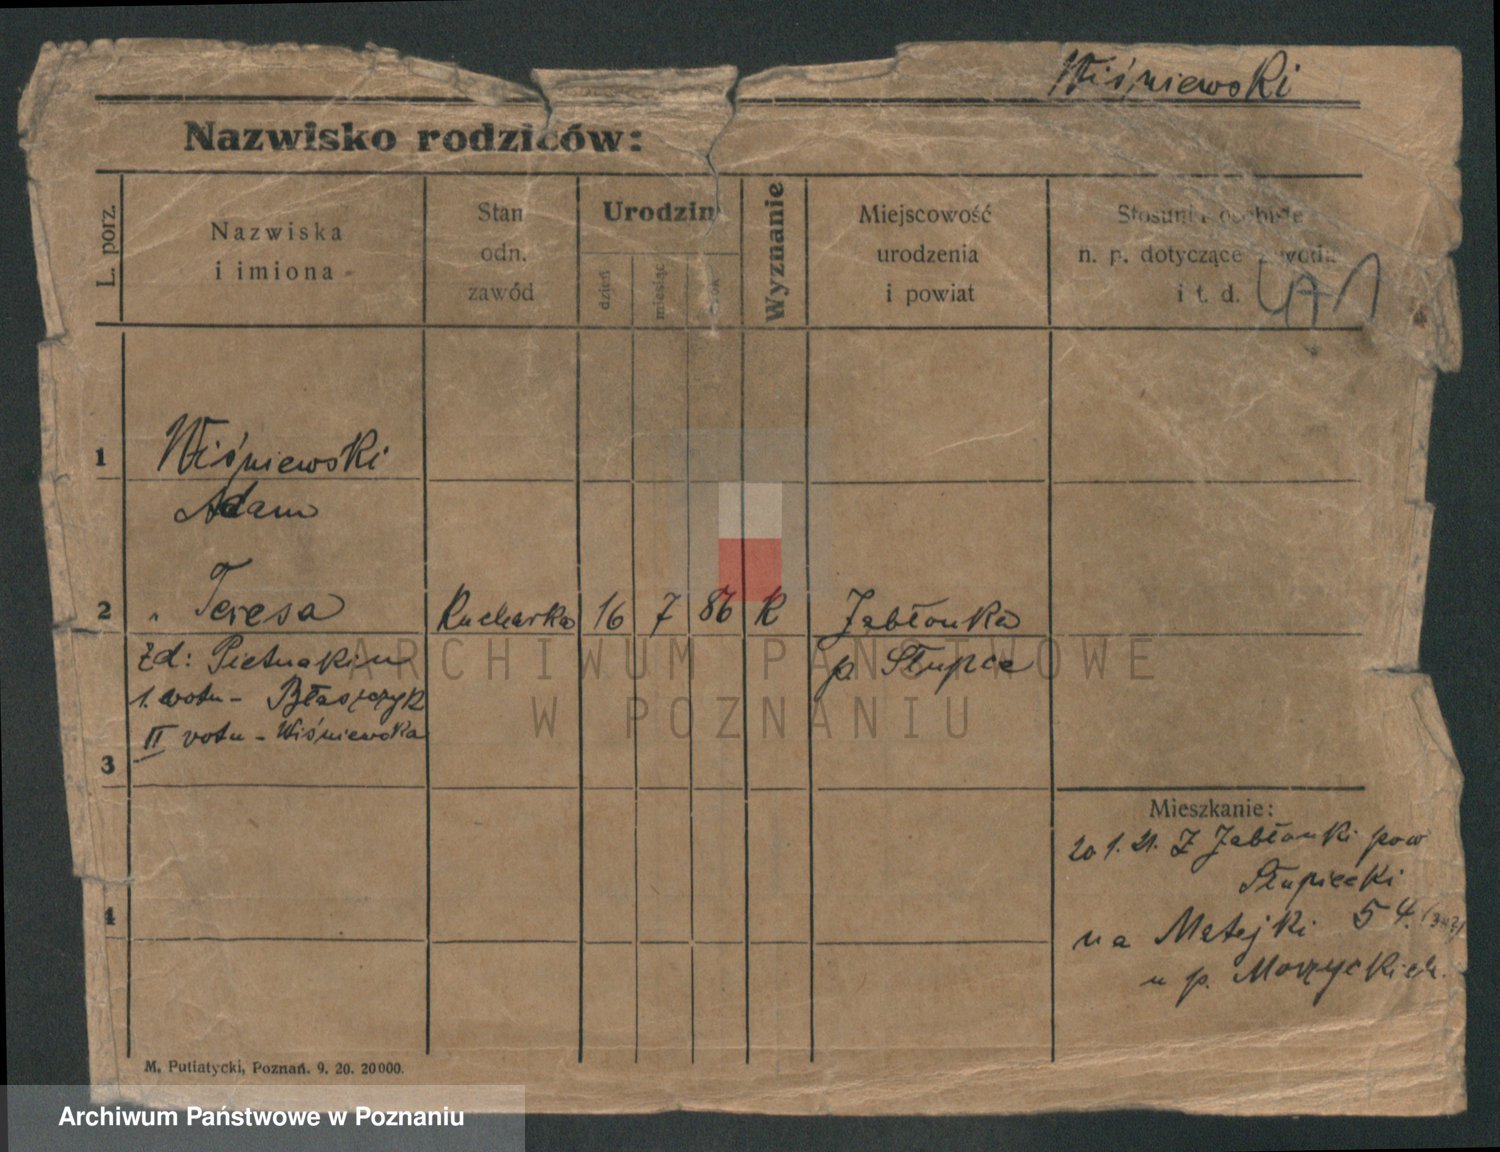 Wiśniewski
Nazwisko rodziców:
L. porz.
Nazwiska
i imiona
Stan
odn.
zawód
Urodzin
dzień
miesiąc
rok
Wyznanie
Miejscowość
urodzenia
i powiat
Stosunki osobiste
n. p. dotyczące zawodu
i t. d.
1 Wiśniewski
Adam
2 " Teresa Kucharka 16 7 86 K Jabłonka
zd: Pietnakin p. Słupce
1. votu - Błaszczyk
II votu - Wiśniewska
3
Mieszkanie:
20 1. 21. Z Jabłonki pow
Słupiecki
4
na Matejki 54.
u p. Morzyckich.
M. Putiatycki, Poznań. 9. 20. 20000.
ARCHIWUM PAŃSTWOWE
W POZNANIU
Archiwum Państwowe w Poznaniu